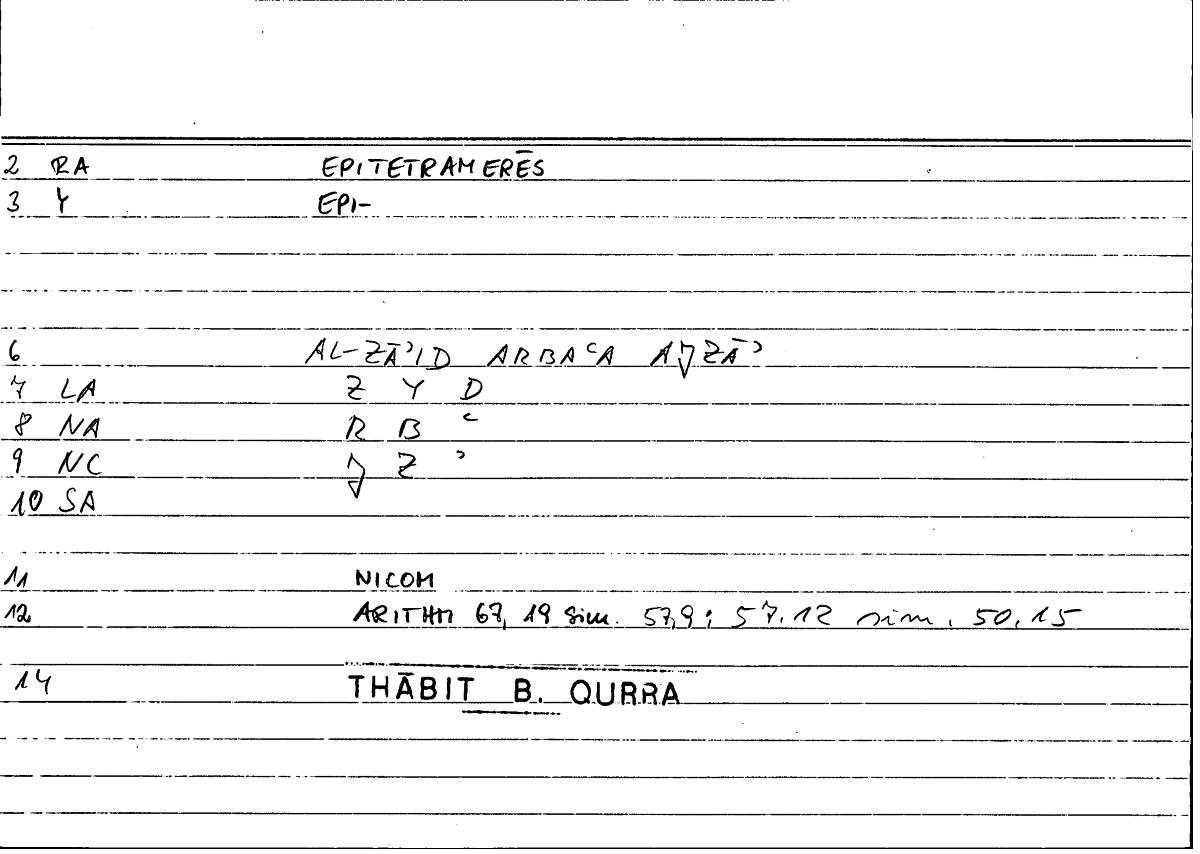 2 RA EPITETRAMERĒS
3 Y EPI-
6 AL-ZĀʾID ARBAʿA AJZĀʾ
7 LA Z Y D
8 NA R B ʿ
9 NC J Z ʾ
10 SA
11 NICOM
12 ARITHM 67, 19 Sim. 57,9; 57.12 sim. 50.15
14 THĀBIT B. QURRA